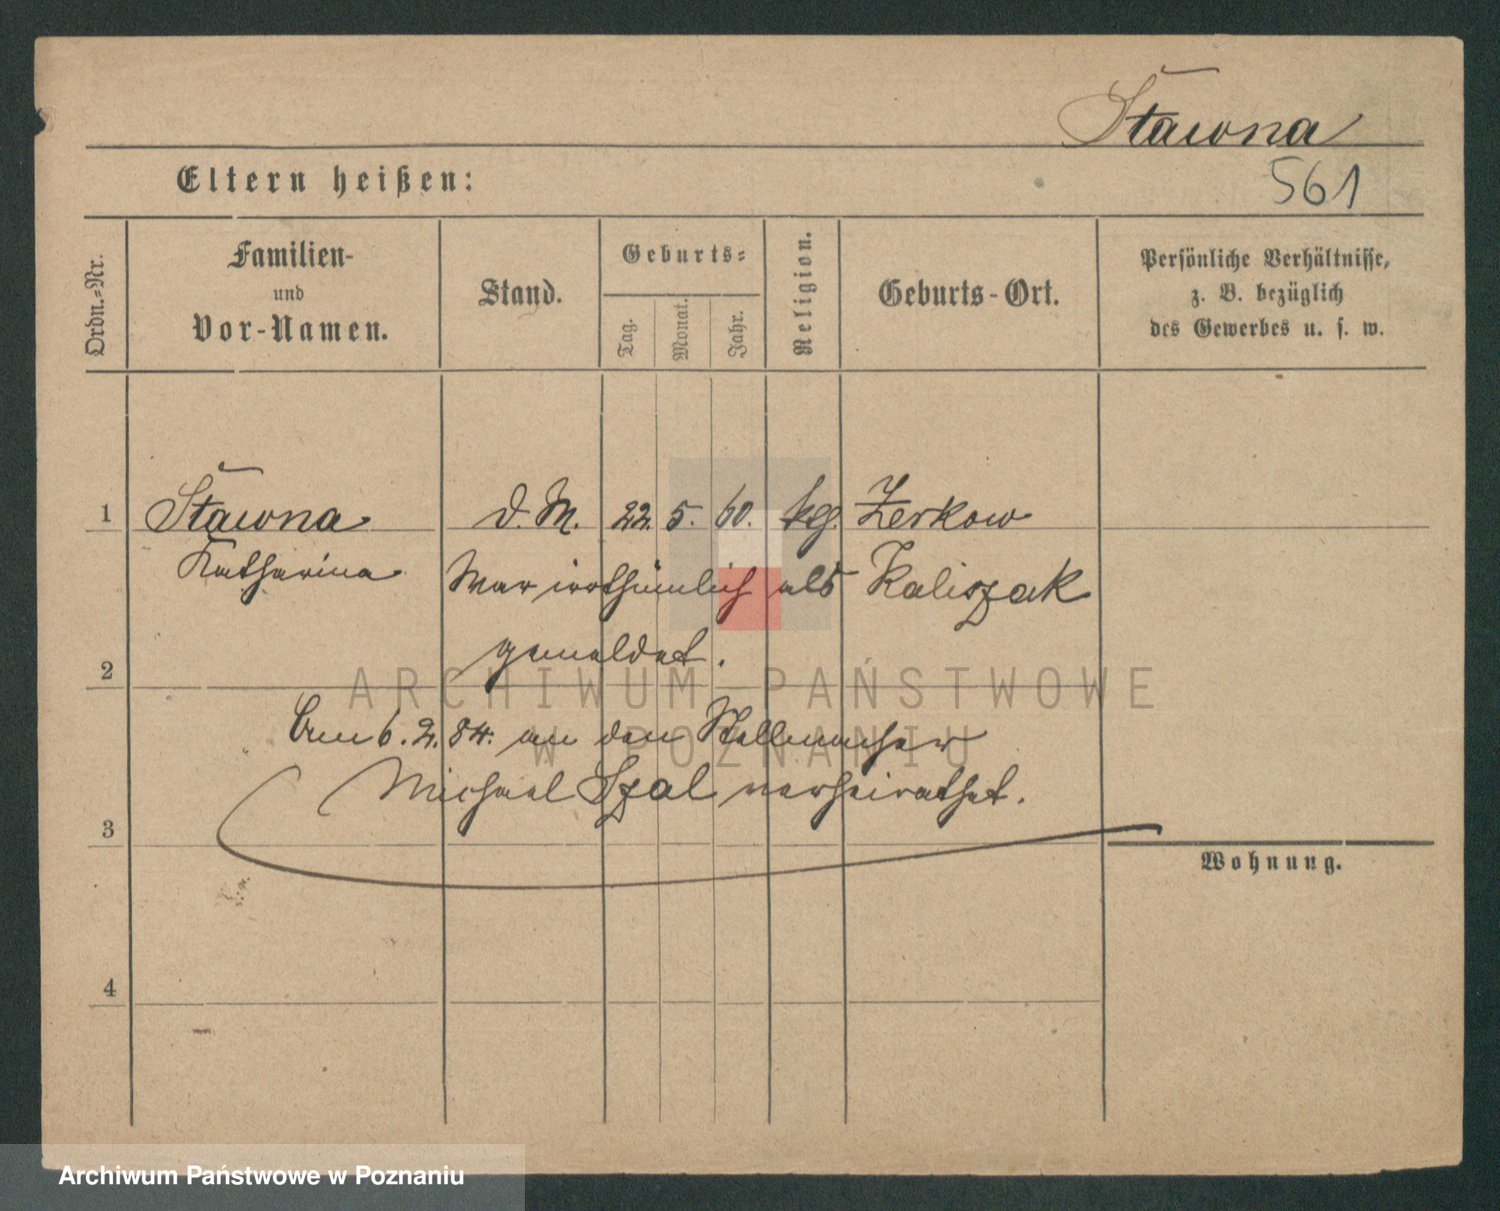 Stawna
561
Eltern heißen:
Ordn.-Nr.
Familien-
und
Vor-Namen.
Stand.
Geburts-
Tag.
Monat.
Jahr.
Religion.
Geburts-Ort.
Persönliche Verhältnisse,
z. B. bezüglich
des Gewerbes u. s. w.
1 Stawna d. M. 22. 5. 60. kg. Zerkow
Katharina War irrthümlich als Kaliszak
gemeldet.
2
Am 6. 2. 84. an den Stellmacher
Michael Szal verheirathet.
3
Wohnung.
4
ARCHIWUM PAŃSTWOWE
W POZNANIU
Archiwum Państwowe w Poznaniu